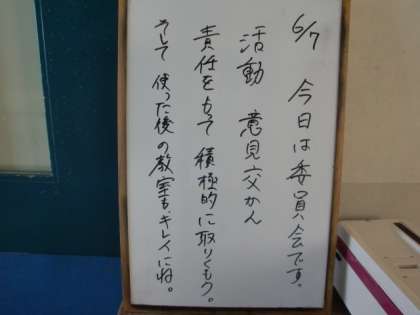 6/7 今日は委員会です。
活動 意見交かん
責任をもって積極的に取りくもう。
そして使った後の教室も、キレイにね。